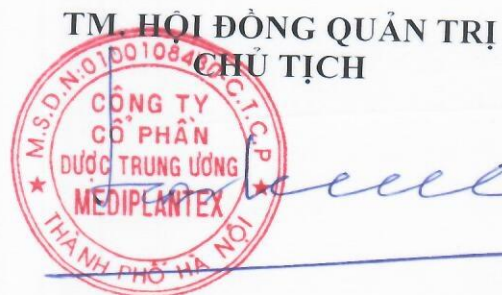 TM. HỘI ĐỒNG QUẢN TRỊ
CHỦ TỊCH
CÔNG TY
CỔ PHẦN
DƯỢC TRUNG ƯƠNG
MEDIPLANTEX
THÀNH PHỐ HÀ NỘI